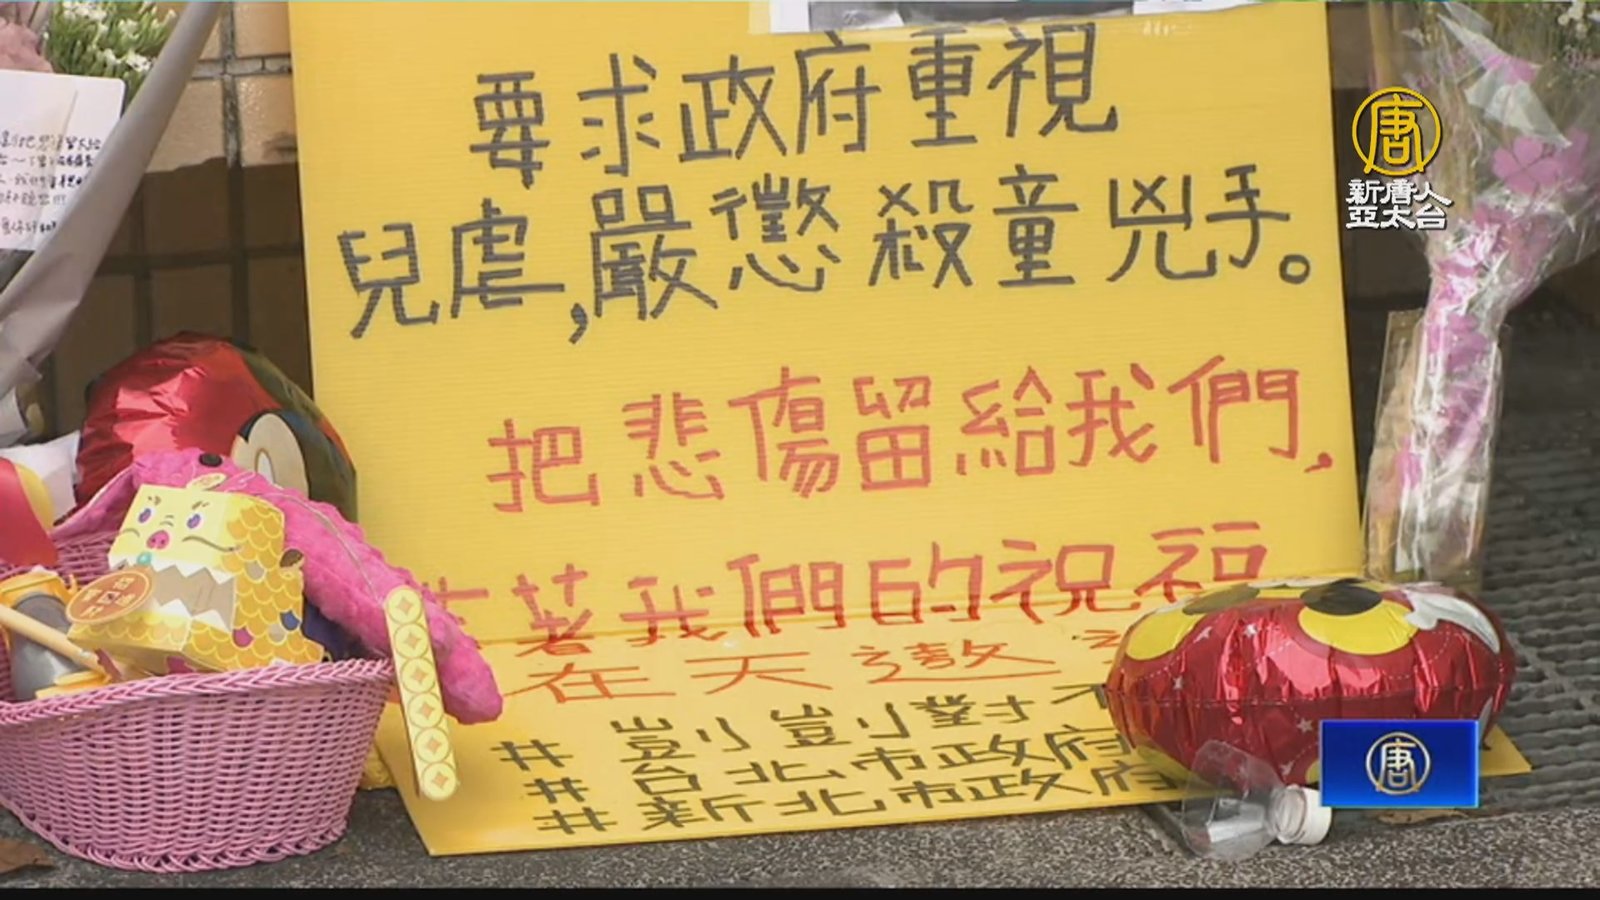 要求政府重視
兒虐,嚴懲殺童兇手。
把悲傷留給我們,
著我們的祝福
在天遨
#剴剴對不
#台北市政府
#新北市政府
唐
新唐人
亞太台
唐